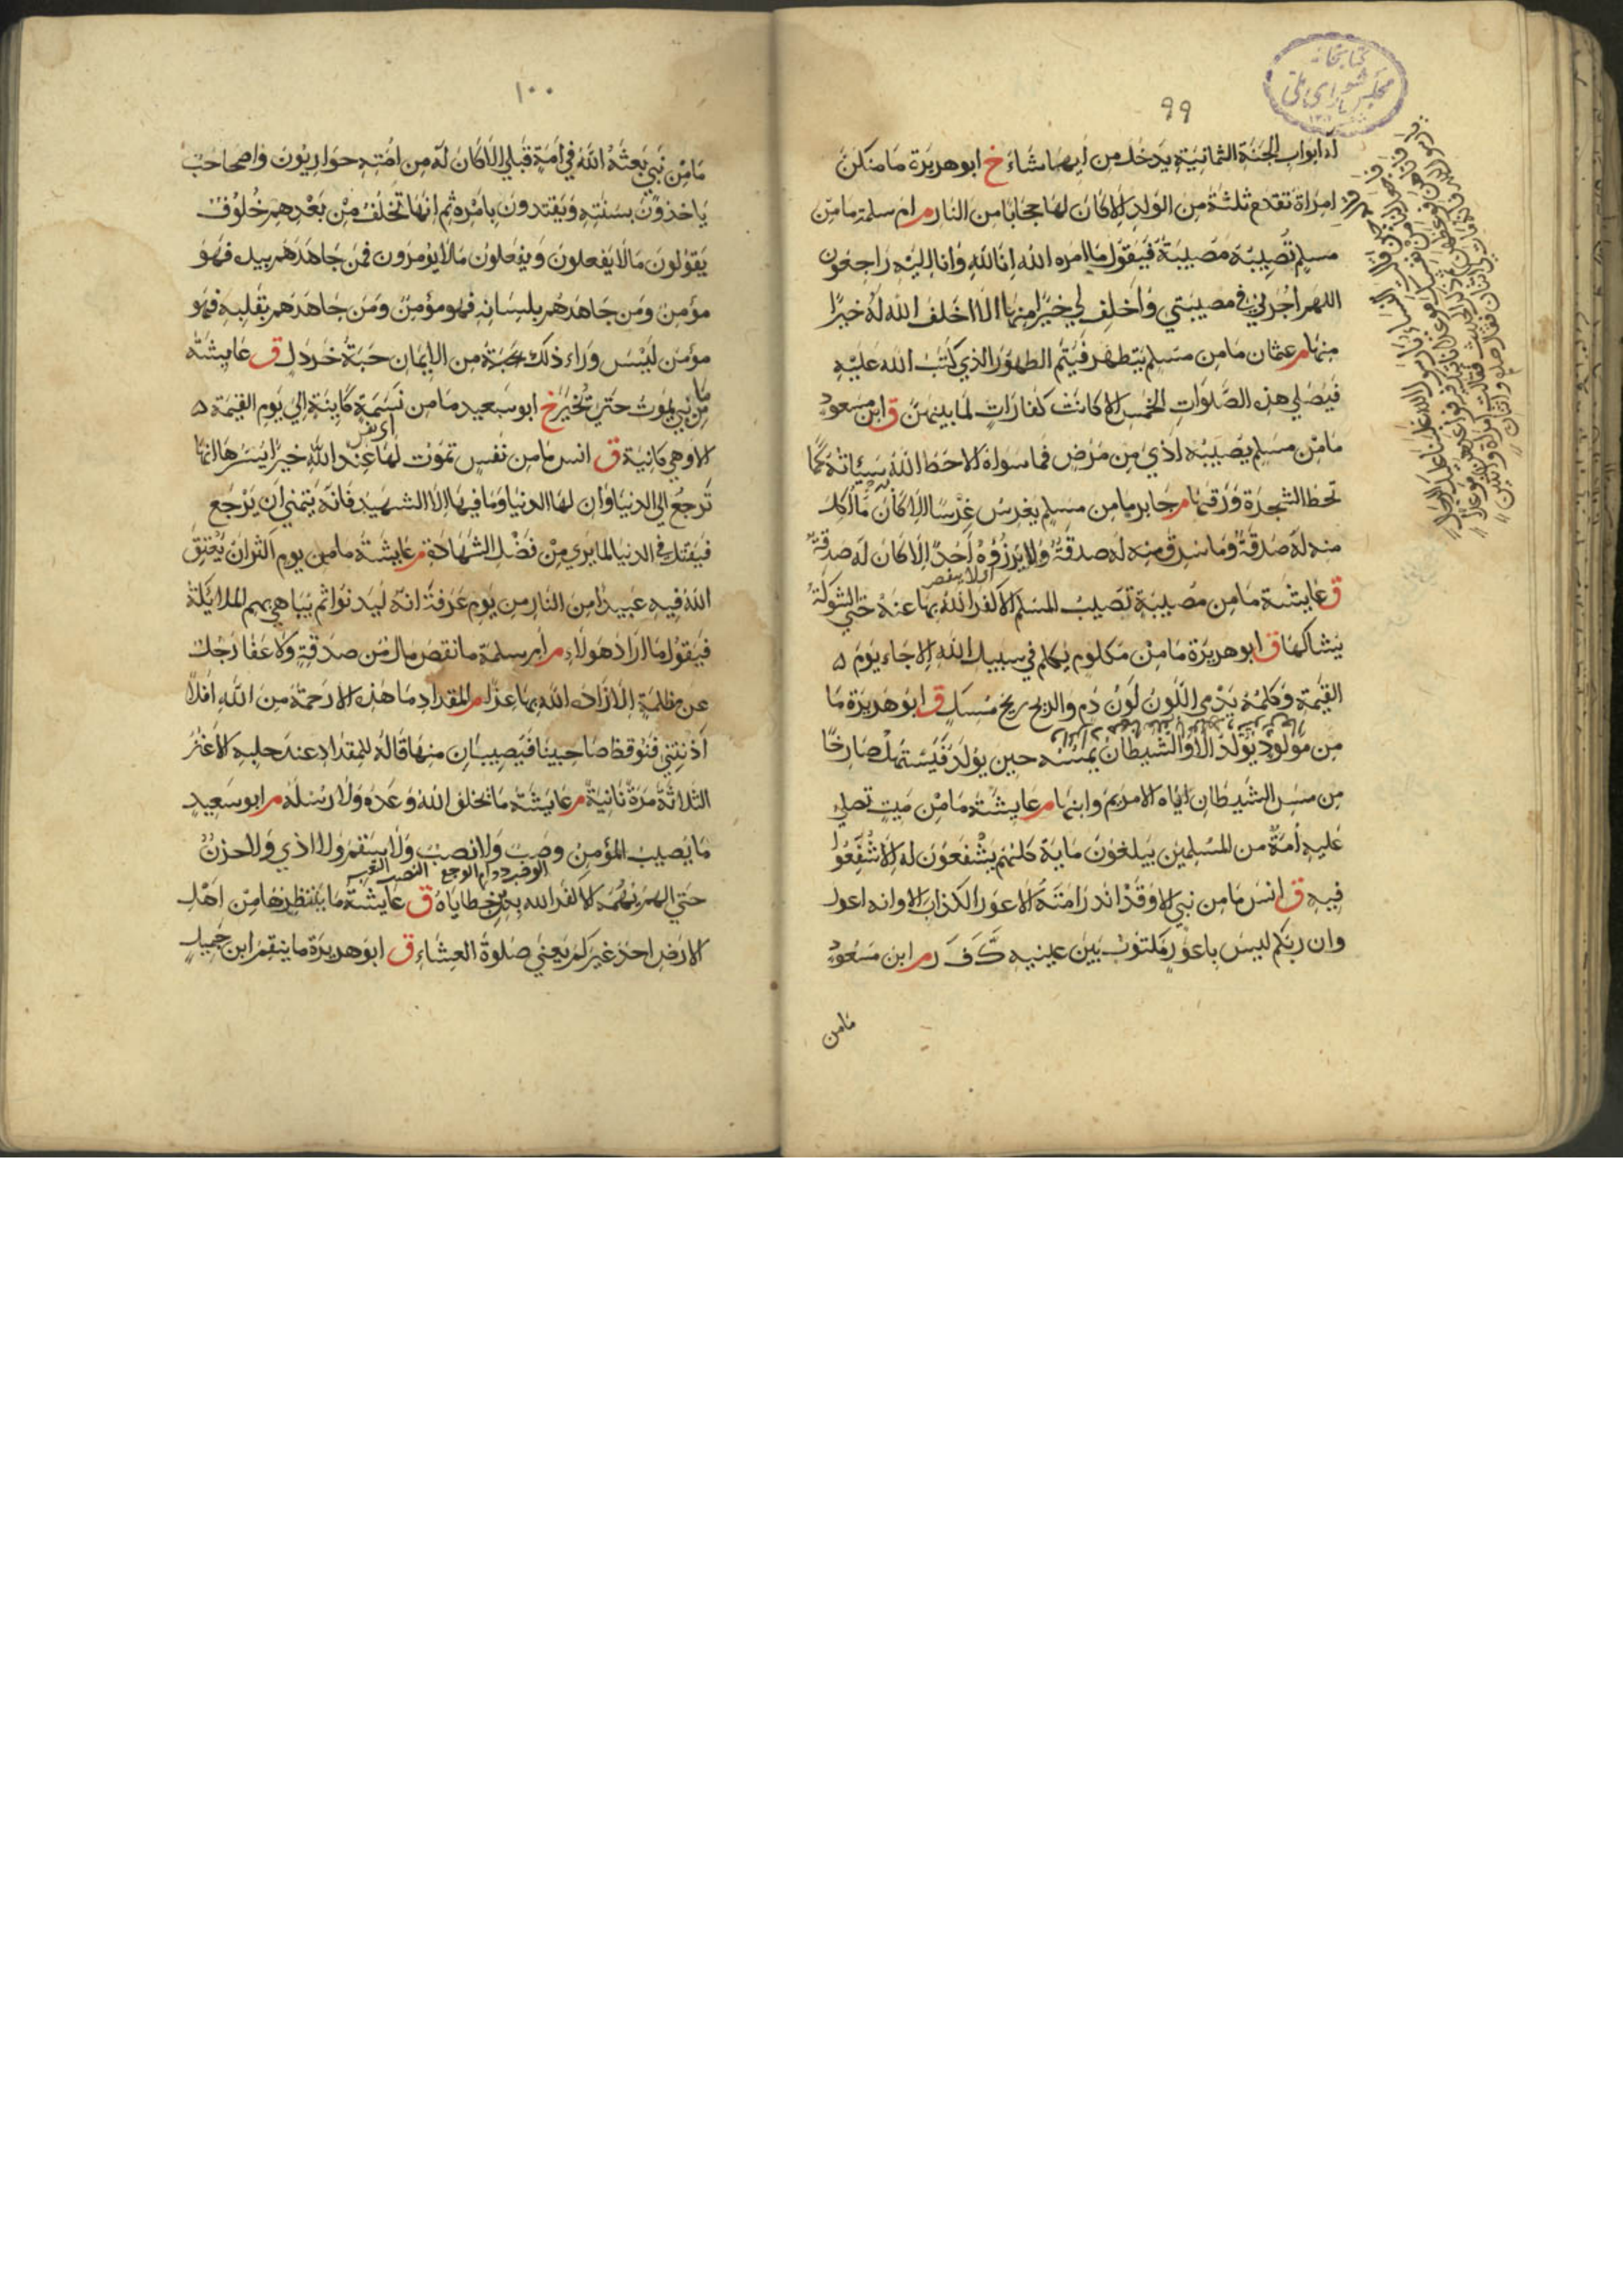 ٩٩
له ابواب الجنة الثمانية يدخل من ايها شاء خ ابو هريرة ما منكن
امراة تقدم ثلثة من الولد الا كان لها حجابا من النار م ام سلمة ما من
مسلم تصيبه مصيبة فيقول ما امره الله انا لله وانا اليه راجعون
اللهم اجرني في مصيبتي واخلف لي خيرا منها الا اخلف الله له خيرا
منها م عثمان ما من مسلم يتطهر فيتم الطهور الذي كتب الله عليه
فيصلي هذه الصلوات الخمس الا كانت كفارات لما بينهن ق ابن مسعود
ما من مسلم يصيبه اذي من مرض فما سواه الا حط الله به سيئاته كما
تحط الشجرة ورقها م جابر ما من مسلم يغرس غرسا الا كان ما اكل
منه له صدقة وما سرق منه له صدقة ولا يرزؤه احد الا كان له صدقة
اي لا ينقص
ق عايشة ما من مصيبة تصيب المسلم الا كفر الله بها عنه حتي الشوكة
يشاكها ق ابو هريرة ما من مكلوم يكلم في سبيل الله الا جاء يوم
القيمة وكلمه يدمي اللون لون دم والريح ريح مسك ق ابو هريرة ما
من مولود يولد الا والشيطان يمسه حين يولد فيستهل صارخا
من مس الشيطان اياه الا مريم وابنها م عايشة ما من ميت تصلي
عليه امة من المسلمين يبلغون ماية كلهم يشفعون له الا شفعوا
فيه ق انس ما من نبي الا وقد انذر امته الاعور الكذاب الا وانه اعور
وان ربكم ليس باعور مكتوب بين عينيه ك ف ر م ابن مسعود
ما من
١٠٠
ما من نبي بعثه الله في امة قبلي الا كان له من امته حواريون واصحاب
ياخذون بسنته ويقتدون بامره ثم انها تخلف من بعدهم خلوف
يقولون ما لا يفعلون ويفعلون ما لا يؤمرون فمن جاهدهم بيده فهو
مؤمن ومن جاهدهم بلسانه فهو مؤمن ومن جاهدهم بقلبه فهو
مؤمن ليس وراء ذلك من الايمان حبة خردل ق عايشة
ما من نبي يموت حتي تخير خ ابو سعيد ما من نسمة كاينة الي يوم القيمة
اي نفس
الا وهي كاينة ق انس ما من نفس تموت لها عند الله خير ايسرها انها
ترجع الي الدنيا وان لها الدنيا وما فيها الا الشهيد فانه يتمني ان يرجع
فيقتل في الدنيا لما يري من فضل الشهادة م عايشة ما من يوم اكثر ان يعتق
الله فيه عبيدا من النار من يوم عرفة انه ليدنوا ثم يباهي بهم الملايكة
فيقول ما اراد هولاء م ام سلمة ما نقص مال من صدقة ولا عفا رجل
عن مظلمة الا زاده الله بها عزا م المقداد ما هذه الا رحمة من الله افلا
اذنتني فنوقظ صاحبينا فيصيبان منها قاله للمقداد عند حلبه الاعنز
الثلاثة مرة ثانية م عايشة ما يخلف الله وعده ولا رسله م ابو سعيد
ما يصيب المؤمن وصب ولا نصب ولا سقم ولا اذي ولا حزن
الوصب دوام الوجع النصب التعب
حتي الهم يهمه الا كفر الله به من خطاياه ق عايشة ما ينتظرها من اهل
الارض احد غيركم يعني صلوة العشاء ق ابو هريرة ما ينقم ابن جميل